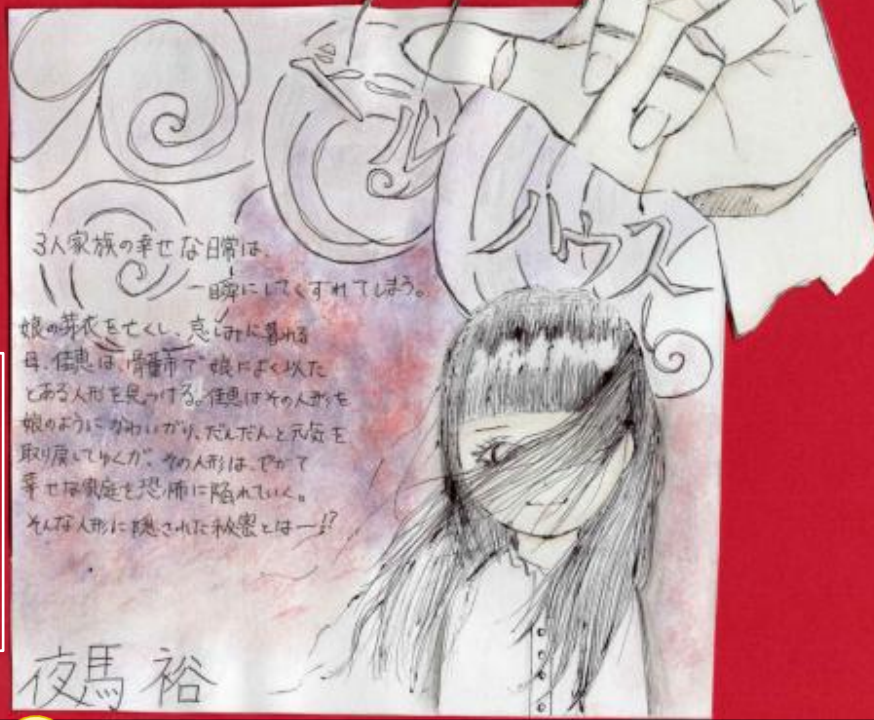 ドール
ハウス
3人家族の幸せな日常は、
一瞬にしてくずれてしまう。
娘の芽衣を亡くし、悲しみに暮れる
母、佳恵は、骨董市で娘によく似た
とある人形を見つける。佳恵はその人形を
娘のようにかわいがり、だんだんと元気を
取り戻してゆくが、その人形は、やがて
幸せな家庭を恐怖に陥れていく。
そんな人形に隠された秘密とは―!?
夜馬 裕